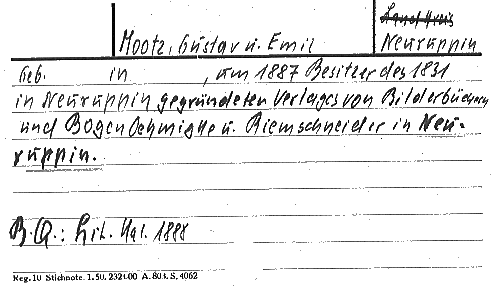 Landkreis
Mootz, Gustav u. Emil Neuruppin
Geb. in , um 1887 Besitzer des 1831
in Neuruppin gegründeten Verlages von Bilderbüchern
und Bogen Oehmigke u. Riemschneider in Neu-
ruppin.
B.Q.: Lit. Kal. 1888
Reg. 10 Stichnote. 1. 50. 232t00 A. 80. t. S. 4062